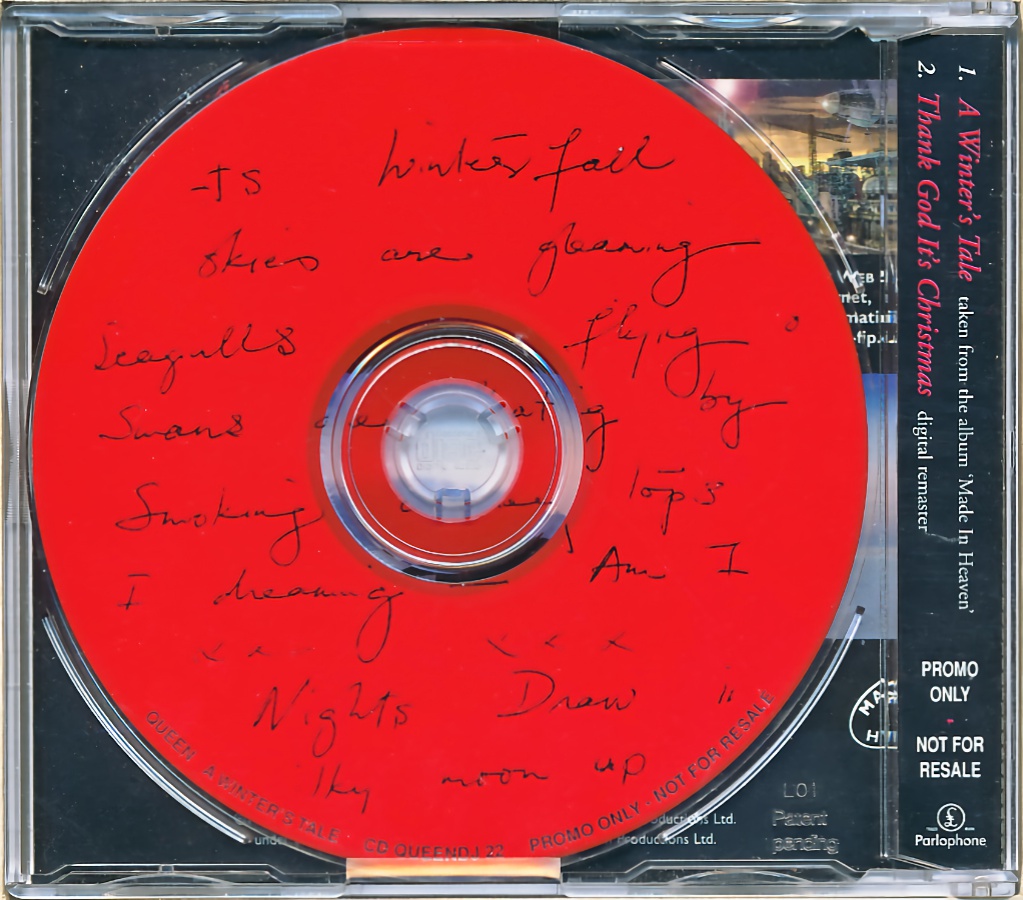 -Ts Winter's fall
skies are gleaming
Seagulls flying
Swans are by
Smoking tops
I dreaming Am I
x x x x x
Nights Draw
sky moon up
QUEEN · A WINTER'S TALE · CD QUEENDJ 22 PROMO ONLY · NOT FOR RESALE
WEB !
net,
-fip.
MA
HY
ductions Ltd.
unde
Productions Ltd.
LO1
Patent
pending
1. A Winter's Tale taken from the album 'Made In Heaven'
2. Thank God It's Christmas digital remaster
PROMO
ONLY
·
NOT FOR
RESALE
£
Parlophone